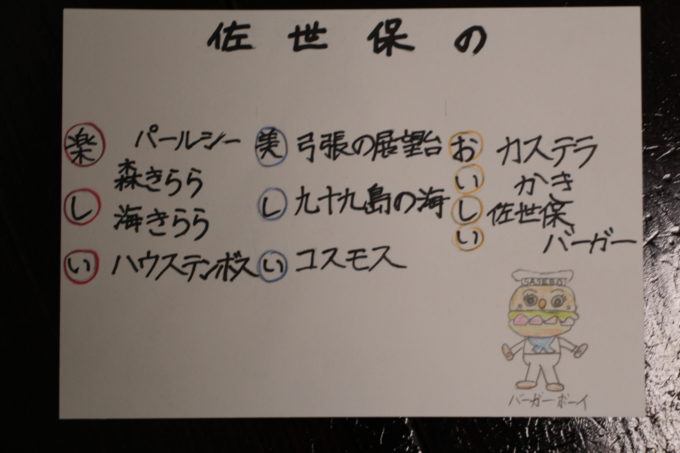 佐世保の
楽しい
パールシー
森きらら
海きらら
ハウステンボス
美しい
弓張の展望台
九十九島の海
コスモス
おいしい
カステラ
かき
佐世保
バーガー
SASEBO
バーガーボーイ